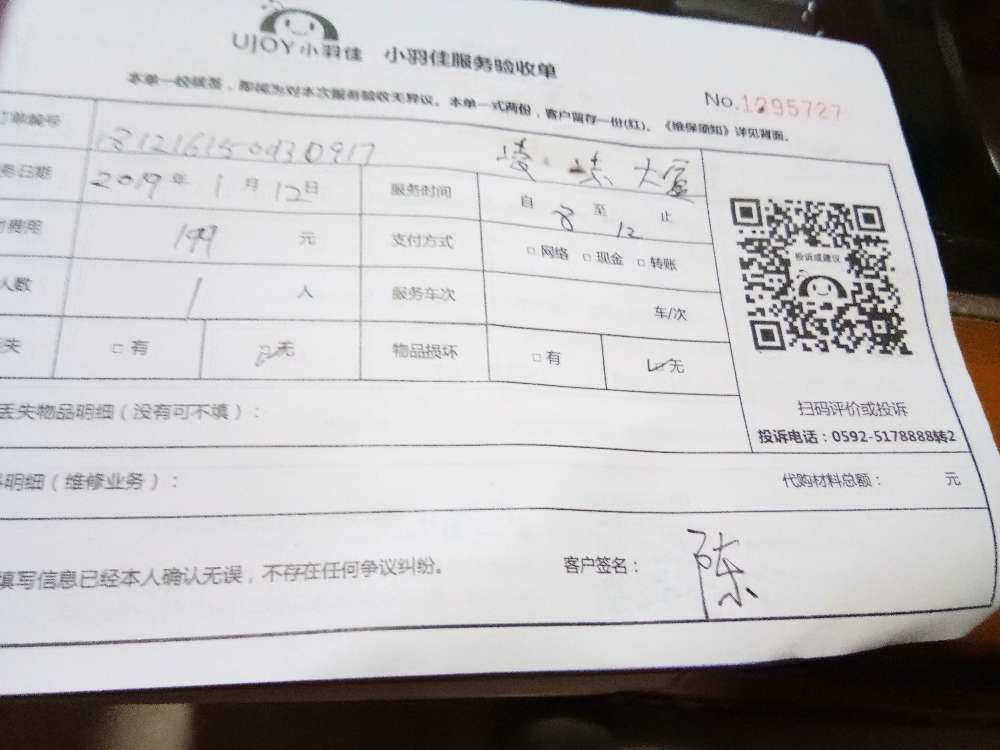 UJOY小羽佳 小羽佳服务验收单
本单一经签签，即视为对本次服务验收无异议。本单一式两份，客户留存一份(红)。《维保须知》详见背面。
No.1295727
订单编号 大厦
务日期 2019年1月12日 服务时间 自8至12止
费用 199元 支付方式 □网络 □现金 □转账
人数 1人 服务车次 车/次
失 □有 □无 物品损坏 □有 □无
投诉或建议
扫码评价或投诉
投诉电话：0592-5178888转2
丢失物品明细（没有可不填）：
明细（维修业务）： 代购材料总额： 元
填写信息已经本人确认无误，不存在任何争议纠纷。 客户签名： 陈